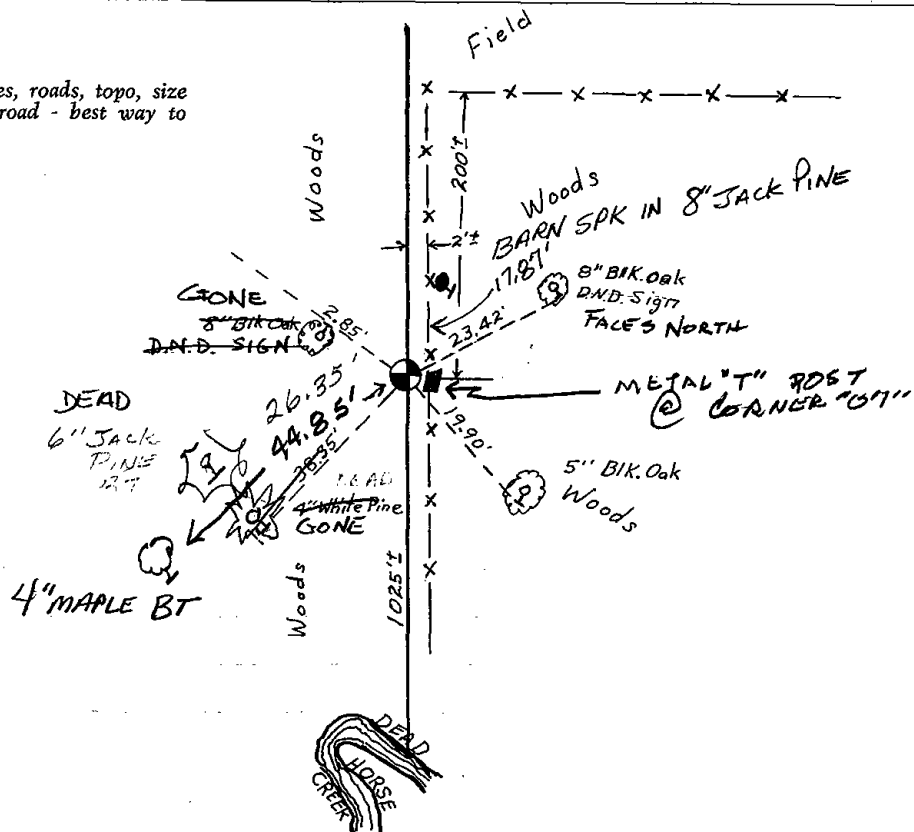 Field
es, roads, topo, size
road - best way to
Woods
200'±
Woods
BARN SPK IN 8" JACK PINE
2'±
17.87'
8" Blk. Oak
D.N.D. Sign
FACES NORTH
23.42'
GONE
8" Blk Oak
D.N.D. SIGN
2.85'
METAL "T" POST
@ CORNER "07"
DEAD
6" JACK
PINE
BT
26.35'
44.85'
38.35'
19.90'
5" Blk. Oak
Woods
DEAD
4" White Pine
GONE
4" MAPLE BT
Woods
1025'±
DEAD
HORSE
CREEK